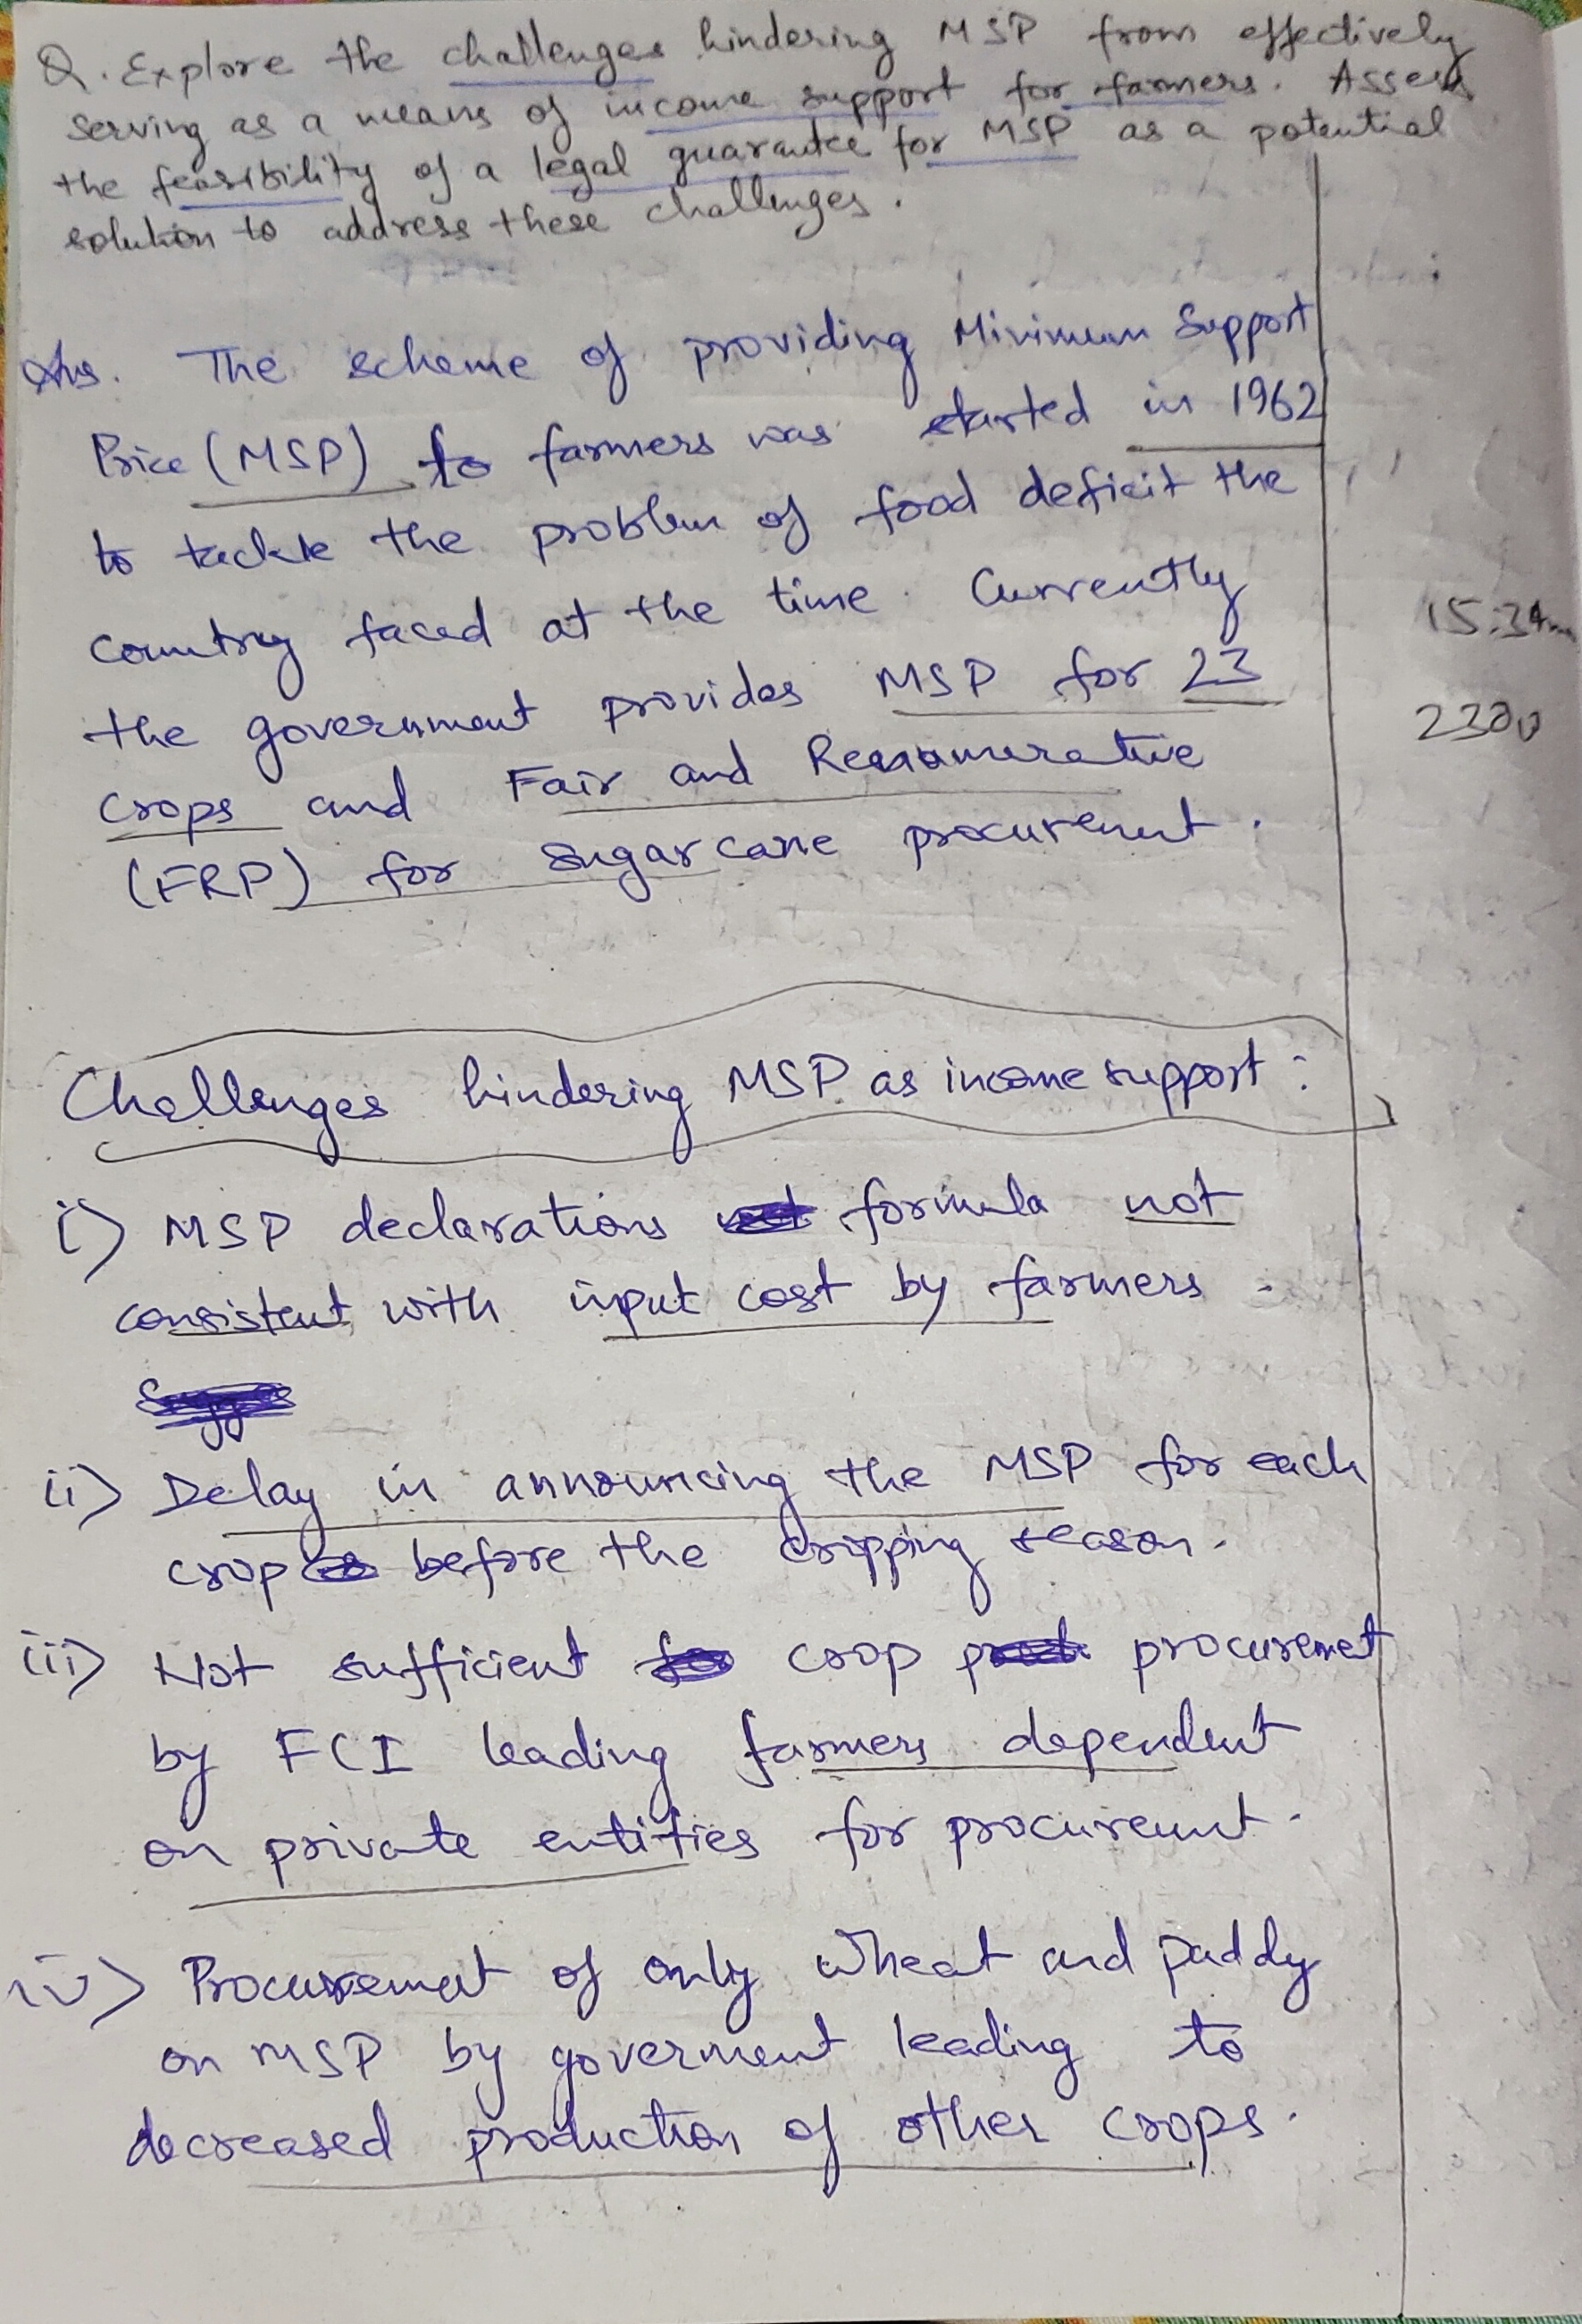 Q. Explore the challenges hindering MSP from effectively
serving as a means of income support for farmers. Assess
the feasibility of a legal guarantee for MSP as a potential
solution to address these challenges.
Ans. The scheme of providing Minimum Support
Price (MSP) to farmers was started in 1962
to tackle the problem of food deficit the
country faced at the time. Currently
15:34
the government provides MSP for 23
crops and Fair and Remamurative
(FRP) for sugarcane procurement.
Challenges hindering MSP as income support:
i) MSP declarations formula not
consistent with input cost by farmers.
ii) Delay in announcing the MSP for each
crop before the cropping season.
iii) Not sufficient crop procuremet
by FCI leading farmers dependent
on private entities for procurement.
iv) Procurement of only wheat and paddy
on MSP by goverment leading to
decreased production of other crops.